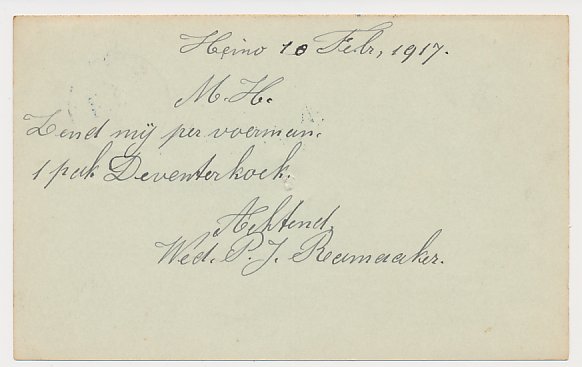 Heino 10 Febr, 1917.
M. H.
Zend mij per voerman.
1 pak Deventerkoek.
Achtend,
Wed. P. J. Reemaaker.